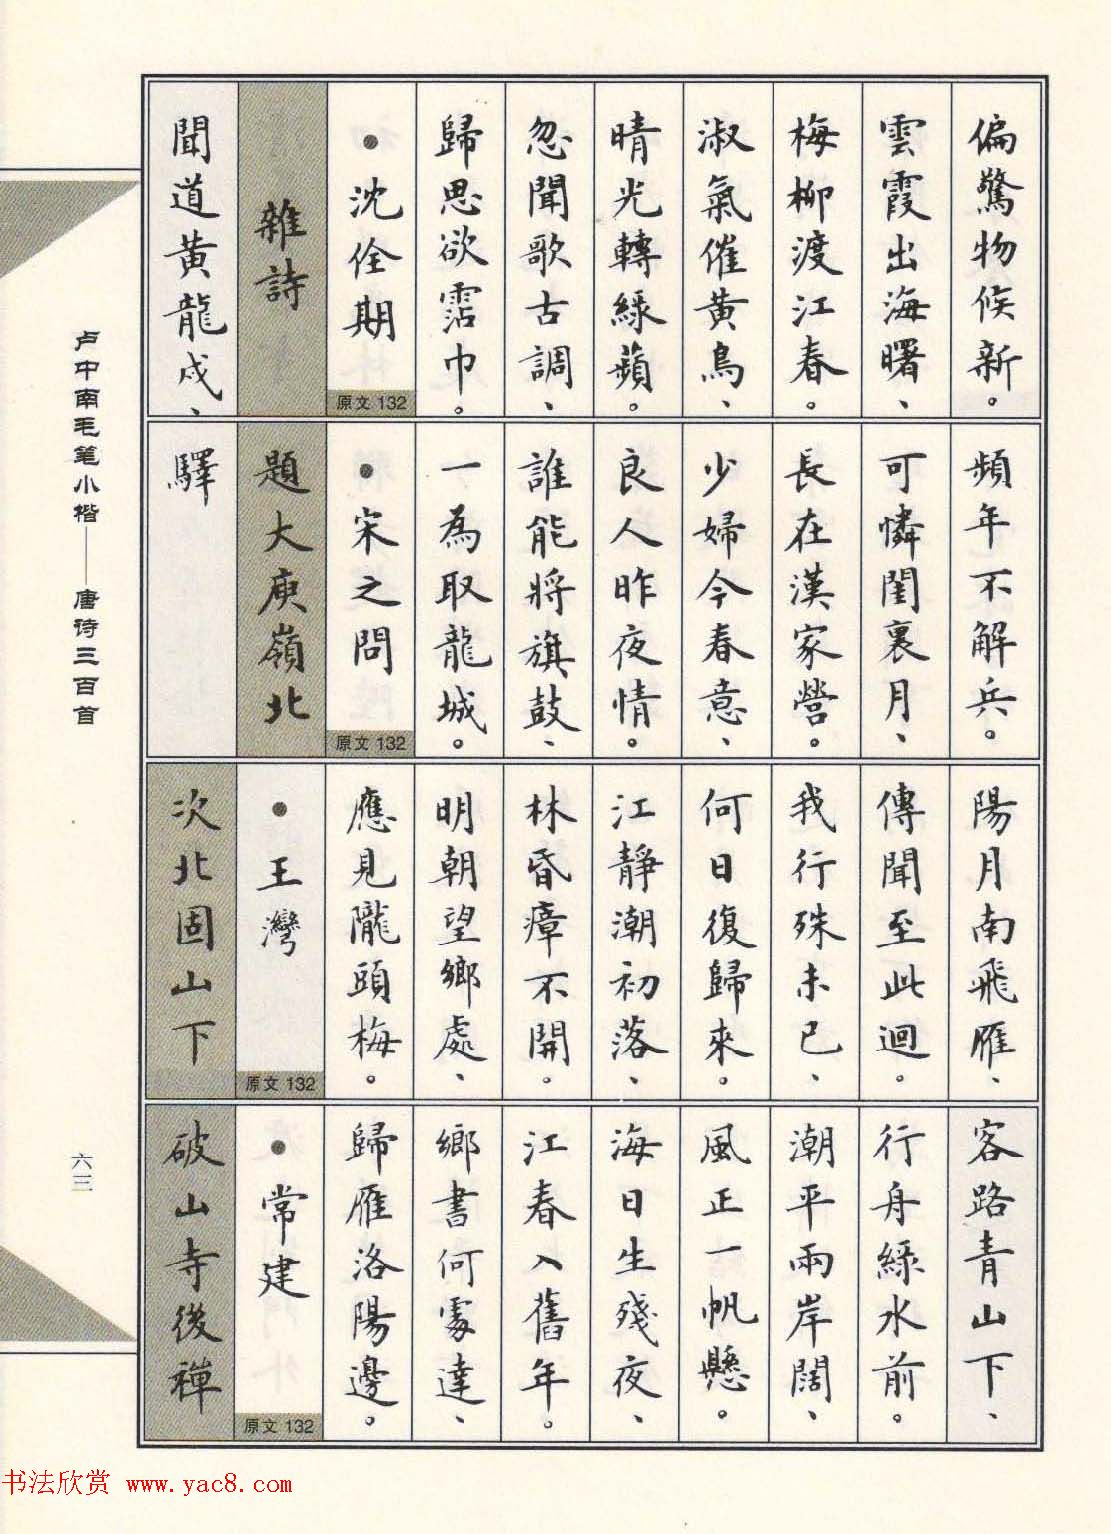 偏驚物候新。
雲霞出海曙、
梅柳渡江春。
淑氣催黃鳥、
晴光轉綠蘋。
忽聞歌古調、
歸思欲霑巾。
•沈佺期
原文 132
雜詩
聞道黃龍戍、
頻年不解兵。
可憐閨裏月、
長在漢家營。
少婦今春意、
良人昨夜情。
誰能將旗鼓、
一為取龍城。
•宋之問
原文 132
題大庾嶺北
驛
陽月南飛雁、
傳聞至此迴。
我行殊未已、
何日復歸來。
江靜潮初落、
林昏瘴不開。
明朝望鄉處、
應見隴頭梅。
•王灣
原文 132
次北固山下
客路青山下、
行舟綠水前。
潮平兩岸闊、
風正一帆懸。
海日生殘夜、
江春入舊年。
鄉書何處達、
歸雁洛陽邊。
•常建
原文 132
破山寺後禪
卢中南毛笔小楷——唐诗三百首
六三
书法欣赏 www.yac8.com